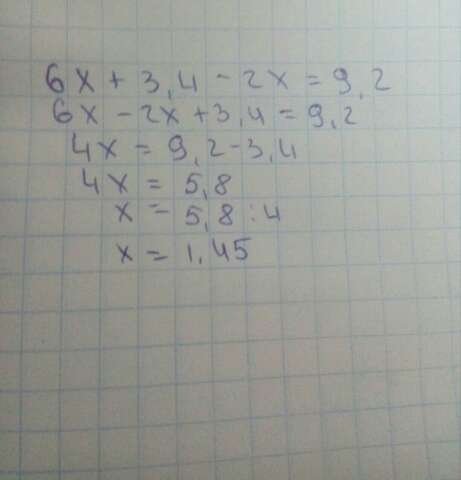 6x + 3,4 - 2x = 9,2
6x - 2x + 3,4 = 9,2
4x = 9,2 - 3,4
4x = 5,8
x = 5,8 : 4
x = 1,45